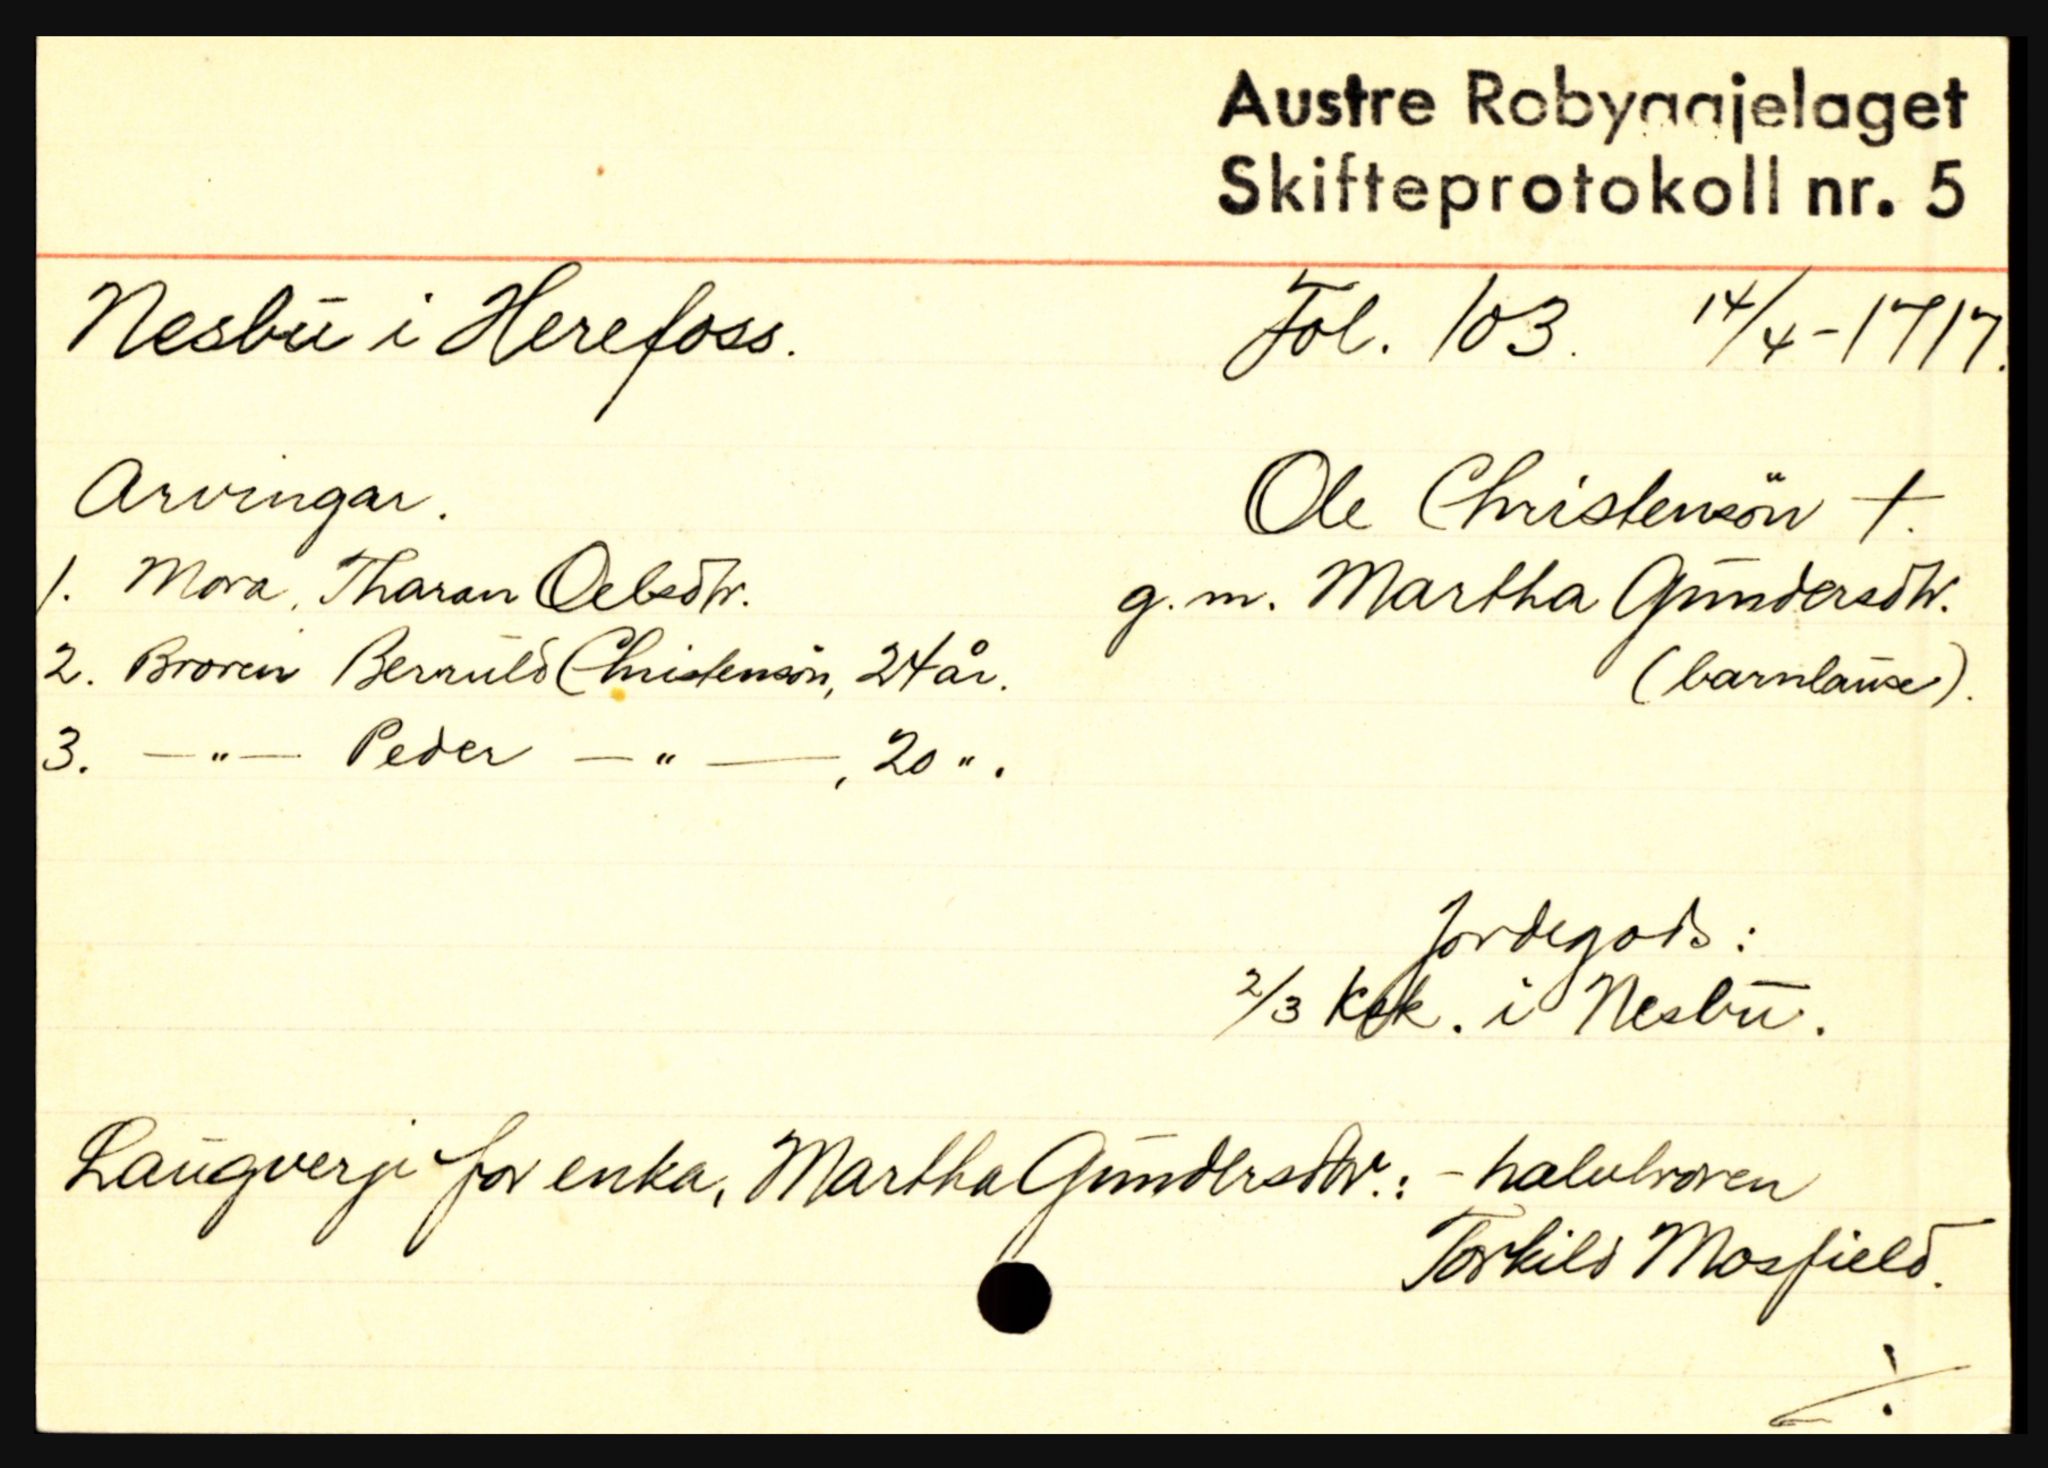 Austre Robyggjelaget
Skifteprotokoll nr. 5
Nesbu i Herefoss. Fol. 103. 14/4-1717.
Arvingar. Ole Christensön †.
1. Mora, Tharan Oelsdtr. g. m. Martha Gundersdtr.
2. Broren Berruld Christensön, 24 år. (barnlause).
3. —"— Peder —"—, 20 ".
Jordegods:
2/3 ksk. i Nesbu.
Laugverje for enka, Martha Gundersdtr.: - halvbroren
Torkild Mosfield.